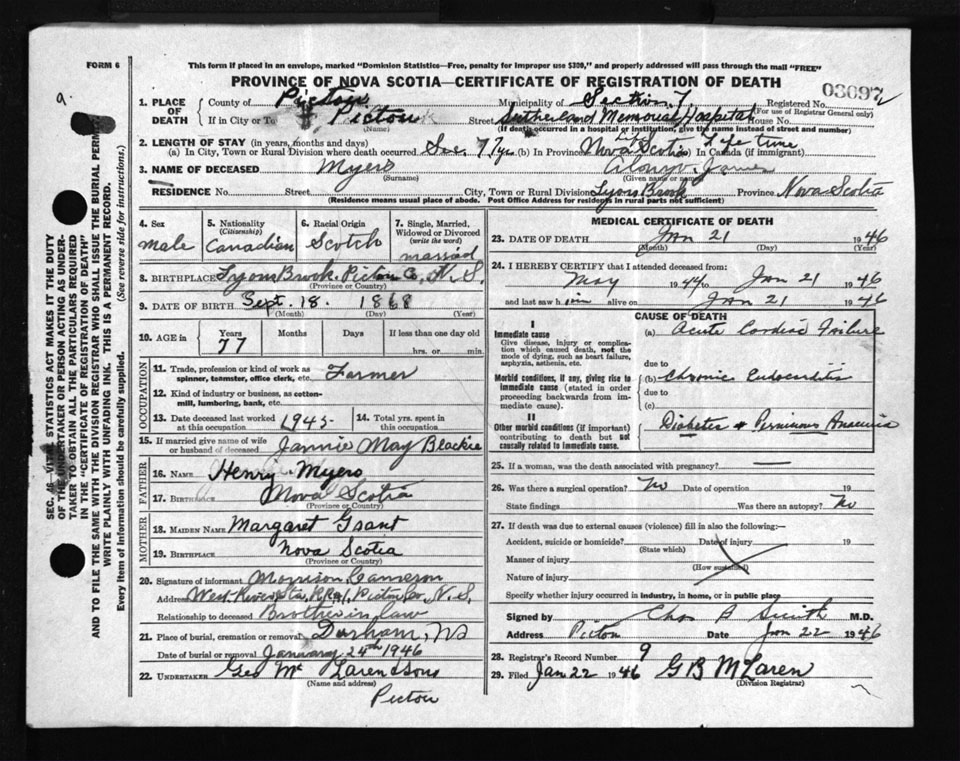 FORM 6
This form if placed in an envelope, marked "Dominion Statistics—Free, penalty for improper use $300," and properly addressed will pass through the mail "FREE"
PROVINCE OF NOVA SCOTIA—CERTIFICATE OF REGISTRATION OF DEATH
9.
03097
1. PLACE OF DEATH
County of Pictou Municipality of Section 7 Registered No.
(For use of Registrar General only)
If in City or To Pictou Street Sutherland Memorial Hospital House No.
(Name) (If death occurred in a hospital or institution, give the name instead of street and number)
2. LENGTH OF STAY (in years, months and days)
(a) In City, Town or Rural Division where death occurred Sec. 7 7 yrs (b) In Province Nova Scotia In Canada (if immigrant) Life time
3. NAME OF DECEASED Myers James
(Surname) (Given name or names)
RESIDENCE No. Street City, Town or Rural Division Lyons Brook Province Nova Scotia
(Residence means usual place of abode. Post Office Address for residents in rural parts not sufficient)
4. Sex male
5. Nationality (Citizenship) Canadian
6. Racial Origin Scotch
7. Single, Married, Widowed or Divorced (write the word) married
8. BIRTHPLACE Lyons Brook, Pictou Co, N.S.
(Province or Country)
9. DATE OF BIRTH Sept. 18. 1868
(Month) (Day) (Year)
10. AGE in Years 77 Months Days If less than one day old
hrs. or min.
OCCUPATION
11. Trade, profession or kind of work as spinner, teamster, office clerk, etc. Farmer
12. Kind of industry or business, as cotton-mill, lumbering, bank, etc.
13. Date deceased last worked at this occupation 1945-
14. Total yrs. spent in this occupation
15. If married give name of wife or husband of deceased Jannie May Blackie
FATHER
16. NAME Henry Myers
17. BIRTHPLACE Nova Scotia
(Province or Country)
MOTHER
18. MAIDEN NAME Margaret Grant
19. BIRTHPLACE Nova Scotia
(Province or Country)
20. Signature of informant Morrison Cameron
Address West River Sta, R.R. 1, Pictou Co, N.S.
Relationship to deceased Brother in law
21. Place of burial, cremation or removal Durham, NS
Date of burial or removal January 24th 1946
22. UNDERTAKER Geo Mc Laren & Sons
(Name and address)
Pictou
MEDICAL CERTIFICATE OF DEATH
23. DATE OF DEATH Jan 21 1946
(Month) (Day) (Year)
24. I HEREBY CERTIFY that I attended deceased from:
May 1944 to Jan 21 1946
and last saw him alive on Jan 21 1946
CAUSE OF DEATH
I
Immediate cause
Give disease, injury or complication which caused death, not the mode of dying, such as heart failure, asphyxia, asthenia, etc.
(a) Acute Cardiac Failure
due to
Morbid conditions, if any, giving rise to immediate cause (stated in order proceeding backwards from immediate cause).
(b) Chronic Endocarditis
due to
(c)
II
Other morbid conditions (if important) contributing to death but not causally related to immediate cause.
Diabetes & Pernicious Anaemia
25. If a woman, was the death associated with pregnancy? —
26. Was there a surgical operation? No Date of operation 19
State findings Was there an autopsy? No
27. If death was due to external causes (violence) fill in also the following:—
Accident, suicide or homicide? Date of injury 19
(State which)
Manner of injury
(How sustained)
Nature of injury
Specify whether injury occurred in industry, in home, or in public place
Signed by Chas A Smith M.D.
Address Pictou Date Jan 22 1946
28. Registrar's Record Number 9
29. Filed Jan 22 1946 G B McLaren
(Division Registrar)
SEC. 46 VITAL STATISTICS ACT MAKES IT THE DUTY
OF THE UNDERTAKER OR PERSON ACTING AS UNDER-
TAKER TO OBTAIN ALL THE PARTICULARS REQUIRED
IN THE "CERTIFICATE OF REGISTRATION OF DEATH"
AND TO FILE THE SAME WITH THE DIVISION REGISTRAR WHO SHALL ISSUE THE BURIAL PERMIT.
WRITE PLAINLY WITH UNFADING INK. THIS IS A PERMANENT RECORD.
Every item of information should be carefully supplied. (See reverse side for instructions.)